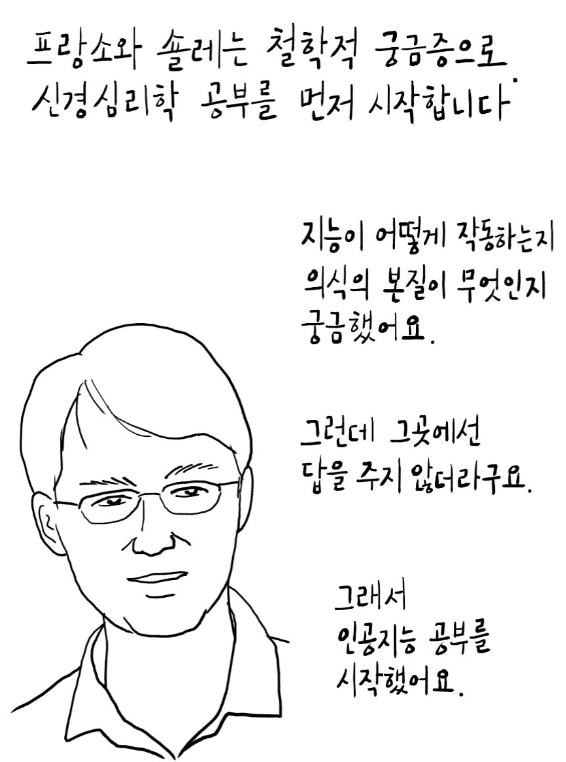 프랑소와 숄레는 철학적 궁금증으로
신경심리학 공부를 먼저 시작합니다.
지능이 어떻게 작동하는지
의식의 본질이 무엇인지
궁금했어요.
그런데 그곳에선
답을 주지 않더라구요.
그래서
인공지능 공부를
시작했어요.